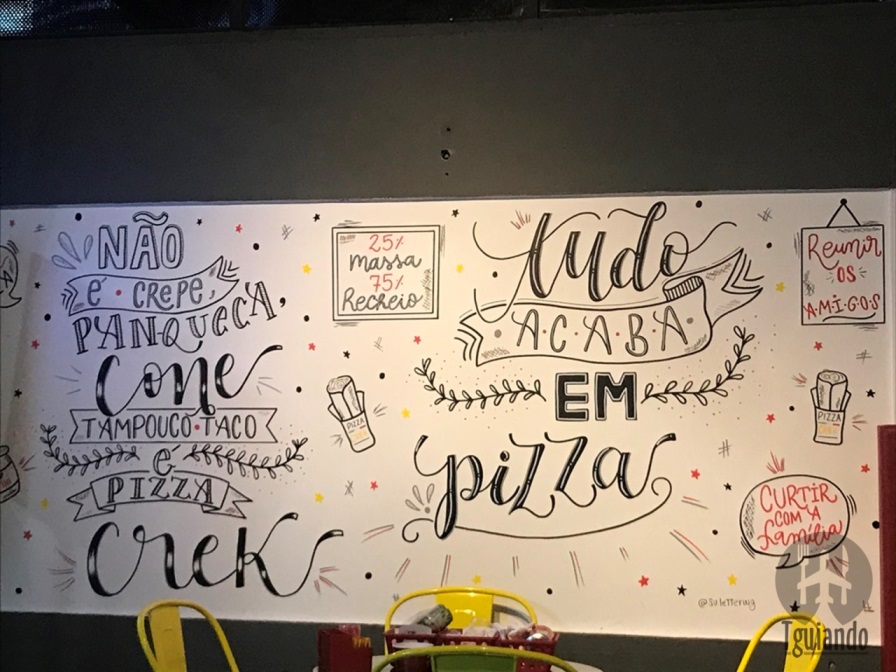 NÃO
é • CREPE,
PANQUECA,
Cone
TAMPOUCO • TACO
é
PIZZA
Crek
25%
massa
75%
Recheio
tudo
A•C•A•B•A
EM
pizza
Reunir
os
A•M•I•G•O•S
PIZZA
PIZZA
CURTIR
COM A
família
Tguiando